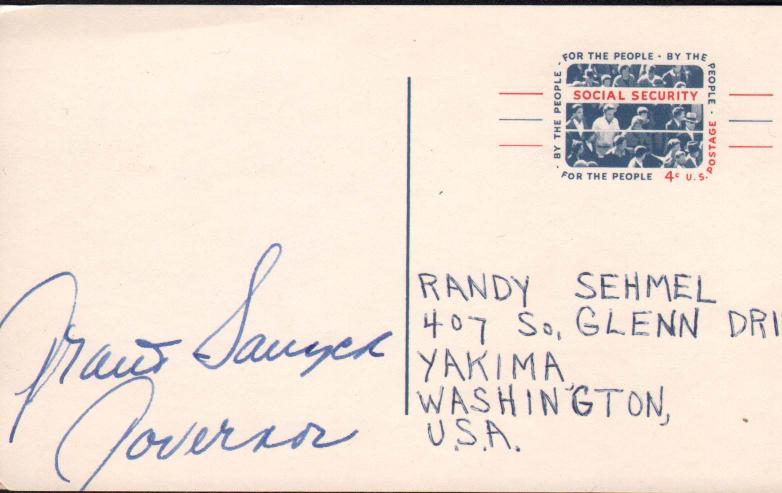 FOR THE PEOPLE · BY THE PEOPLE ·
SOCIAL SECURITY
· BY THE PEOPLE ·
FOR THE PEOPLE 4c U.S. POSTAGE
Grant Sawyer
Governor
RANDY SEHMEL
407 So. GLENN DRI
YAKIMA,
WASHINGTON,
U.S.A.